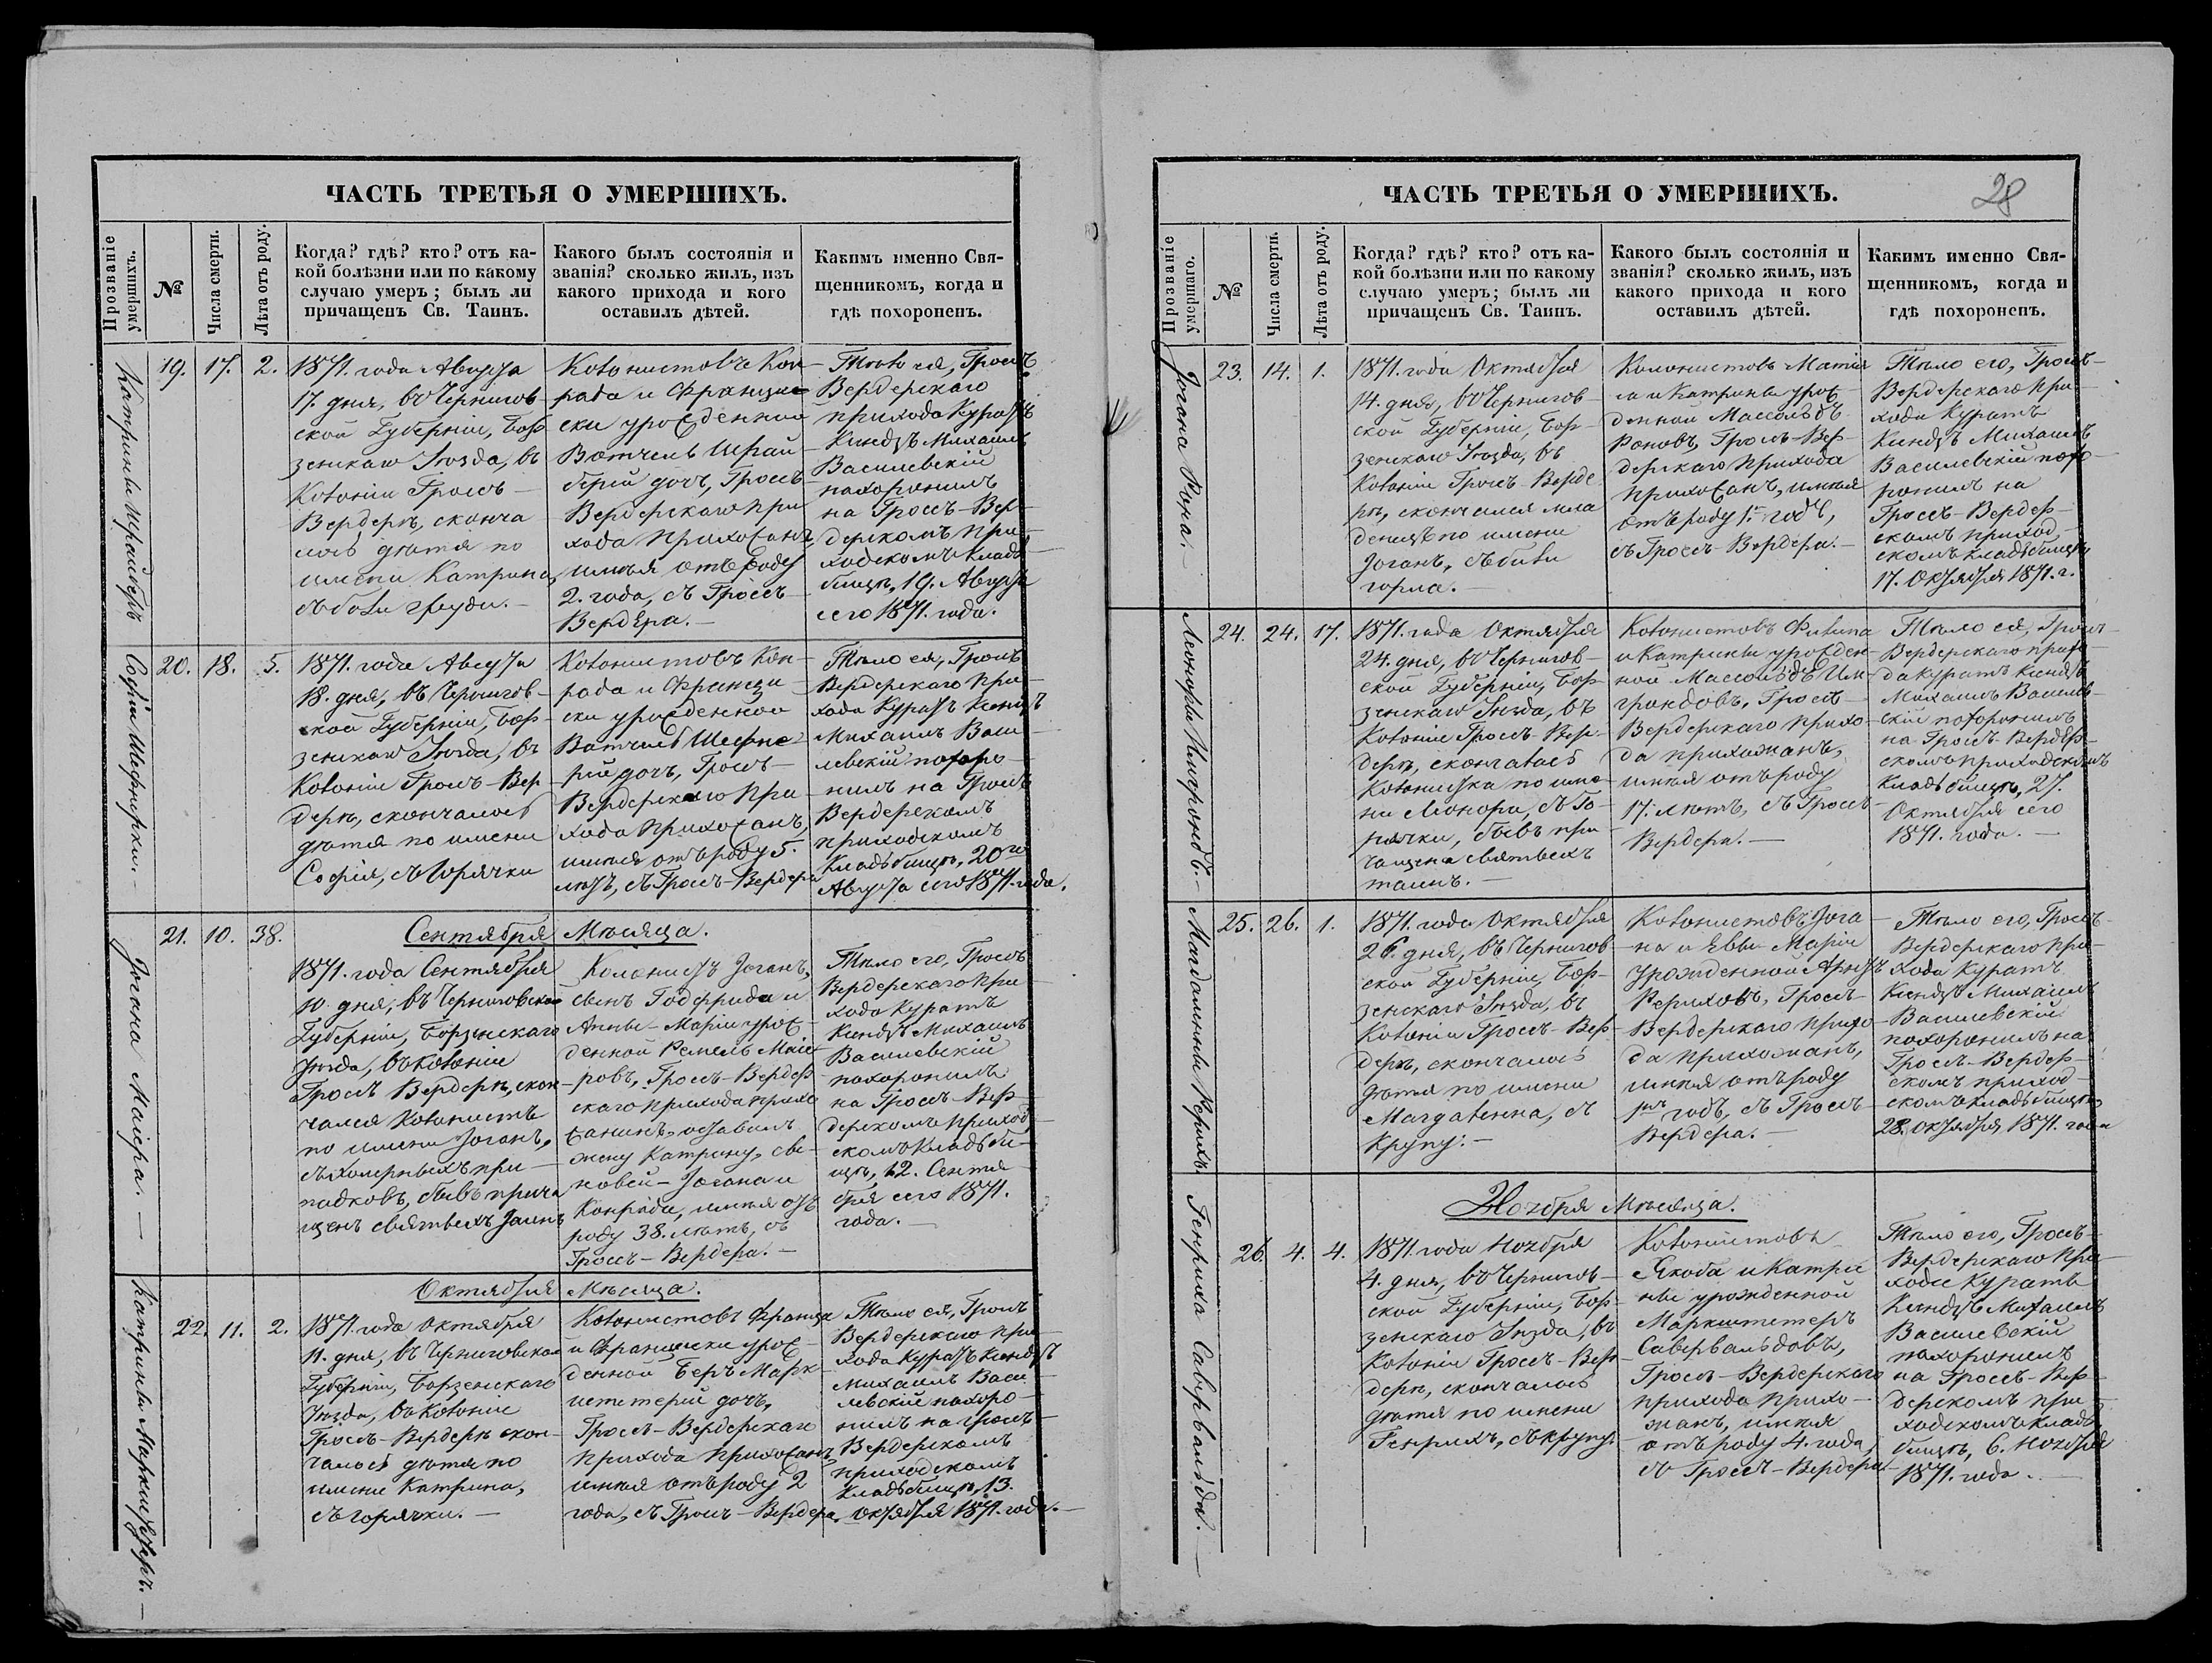 ЧАСТЬ ТРЕТЬЯ О УМЕРШИХЪ.
Прозваніе умершихъ.
№
Числа смерти.
Лѣта отъ роду.
Когда? гдѣ? кто? отъ ка-
кой болѣзни или по какому
случаю умеръ; былъ ли
причащенъ Св. Таинъ.
Какого былъ состоянія и
званія? сколько жилъ, изъ
какого прихода и кого
оставилъ дѣтей.
Какимъ именно Свя-
щенникомъ, когда и
гдѣ похороненъ.
Катрины Шрайберъ
19.
17.
2.
1871. года Августа
17. дня, въ Чернигов-
ской Губерніи, Бор-
зенскаго Уѣзда, въ
Колоніи Гросъ-
Вердеръ, сконча-
лось дѣтя по
имени Катрина,
съ боли груди.-
Колонистовъ Кон-
рада и Францис-
ски урожденной
Ветчель Шрай-
берій дочъ, Гросъ-
Вердерскаго при-
хода прихожанъ,
имѣя отъ роду
2. года, съ Гросъ-
Вердера.-
Тѣло ея, Гросъ-
Вердерскаго
прихода Куратъ
Ксендзъ Михаилъ
Василевскій
похоронилъ
на Гросъ-Вер-
дерскомъ при-
ходскомъ кладъ-
бищѣ, 19. Августа
сего 1871. года.
Софіи Шефнеръ.-
20.
18.
5.
1871. года Августа
18. дня, въ Чернигов-
ской Губерніи, Бор-
зенскаго Уѣзда, въ
Колоніи Гросъ-Вер-
деръ, скончалось
дѣтя по имени
Софія, съ горячки
Колонистовъ Кон-
рада и Францис-
ски урожденной
Ветчель Шефне-
рій дочъ, Гросъ-
Вердерскаго при-
хода прихожанъ,
имѣя отъ роду 5.
лѣтъ, съ Гросъ-Вердера
Тѣло ея, Гросъ
Вердерскаго при-
хода Куратъ Ксендзъ
Михаилъ Васи-
левскій похоро-
нилъ на Гросъ
Вердерскомъ
приходскомъ
кладъбищѣ, 20го
Августа сего 1871. года.
Іогана Маіера.-
21.
10.
38.
Сентября Мѣсяца.
1871. года Сентября
10. дня, въ Черниговской
Губерніи, Борзенскаго
Уѣзда, въ Колоніи
Гросъ Вердеръ, скон-
чался Колонистъ
по имени Іоганъ,
съ холерныхъ при-
падковъ, бывъ прича-
щенъ святыхъ Таинъ
Колонистъ Іоганъ,
сынъ Годфрида и
Анны-Маріи урож-
денной Ремель Маіе-
ровъ, Гросъ-Вердер-
скаго прихода прихо-
жанинъ, оставилъ
жену Катрину, сы-
новей-Іогана и
Конрада, имѣя отъ
роду 38. лѣтъ, съ
Гросъ-Вердера.-
Тѣло его, Гросъ
Вердерскаго при-
хода Куратъ
Ксендзъ Михаилъ
Василевскій
похоронилъ
на Гросъ-Вер-
дерскомъ приход-
скомъ кладъби-
щѣ, 12. Сентя-
бря сего 1871.
года.-
Катрины Маркштетеръ.-
Октября Мѣсяца.
22.
11.
2.
1871. года Октября
11. дня, въ Черниговской
Губерніи, Борзенскаго
Уѣзда, въ Колоніи
Гросъ-Вердеръ скон-
чалось дѣтя по
имени Катрина,
съ горячки.-
Колонистовъ Франца
и Франциски урож-
денной Беръ Марк-
штетерій дочъ,
Гросъ-Вердерскаго
прихода прихожанъ,
имѣя отъ роду 2
года, съ Гросъ-Вердера,
Тѣло ея, Гросъ
Вердерскаго при-
хода Куратъ Ксендзъ
Михаилъ Васи-
левскій похоро-
нилъ на Гросъ-
Вердерскомъ
приходскомъ
кладъбищѣ, 13.
Октября 1871. года.-
28
ЧАСТЬ ТРЕТЬЯ О УМЕРШИХЪ.
Прозваніе умершаго.
№
Числа смерти.
Лѣта отъ роду.
Когда? гдѣ? кто? отъ ка-
кой болѣзни или по какому
случаю умеръ; былъ ли
причащенъ Св. Таинъ.
Какого былъ состоянія и
званія? сколько жилъ, изъ
какого прихода и кого
оставилъ дѣтей.
Какимъ именно Свя-
щенникомъ, когда и
гдѣ похороненъ.
Іогана Рона.-
23.
14.
1.
1871. года Октября
14. дня, въ Чернигов-
ской Губерніи, Бор-
зенскаго Уѣзда, въ
Колоніи Гросъ-Верде-
ръ, скончался мла-
денецъ по имени
Іоганъ, съ боли
горла.-
Колонистовъ Матія-
са и Катрины урож-
денной Массольдъ
Роновъ, Гросъ-Вер-
дерскаго прихода
прихожанъ, имѣя
отъ роду 1. годъ,
съ Гросъ-Вердера.-
Тѣло его, Гросъ-
Вердерскаго при-
хода Куратъ
Ксендзъ Михаилъ
Василевскій похо-
ронилъ на
Гросъ-Вердер-
скомъ приход-
скомъ кладъбищѣ
17. Октября 1871. г.
Леоноры Имгрондъ.-
24.
24.
17.
1871. года Октября
24. дня, въ Чернигов-
ской Губерніи, Бор-
зенскаго Уѣзда, въ
Колоніи Гросъ-Вер-
деръ, скончалась
Колонистка по име-
ни Леонора, съ го-
рячки, бывъ при-
чащена святыхъ
таинъ.-
Колонистовъ Филипа
и Катрины урожден-
ной Массольдъ Им-
грондовъ, Гросъ-
Вердерскаго прихо-
да прихожанъ,
имѣя отъ роду
17. лѣтъ, съ Гросъ-
Вердера.-
Тѣло ея, Гросъ-
Вердерскаго прихо-
да Куратъ Ксендзъ
Михаилъ Василев-
скій похоронилъ
на Гросъ-Вердер-
скомъ приходскомъ
кладъбищѣ, 27.
Октября сего
1871. года.-
Магдаленны Рерихъ.
25.
26.
1.
1871. года Октября
26. дня, въ Чернигов-
ской Губерніи, Бор-
зенскаго Уѣзда, въ
Колоніи Гросъ-Вер-
деръ, скончалось
дѣтя по имени
Магдаленна, съ
крупу.-
Колонистовъ Іога-
на и Евы Маріи
урожденной Арндтъ
Рериховъ, Гросъ-
Вердерскаго прихо-
да прихожанъ,
имѣя отъ роду
1нъ годъ, съ Гросъ-
Вердера.-
Тѣло его, Гросъ-
Вердерскаго при-
хода Куратъ
Ксендзъ Михаилъ
Василевскій
похоронилъ на
Гросъ-Вердер-
скомъ приход-
скомъ кладъбищѣ,
28. Октября 1871. года
Генриха Савервальда.-
Ноября Мѣсяца.
26.
4.
4.
1871. года Ноября
4. дня, въ Чернигов-
ской Губерніи, Бор-
зенскаго Уѣзда, въ
Колоніи Гросъ-Вер-
деръ, скончалось
дѣтя по имени
Генрихъ, съ крупу.
Колонистовъ
Якоба и Катри-
ны урожденной
Маркштетеръ
Савервальдовъ,
Гросъ-Вердерскаго
прихода прихо-
жанъ, имѣя
отъ роду 4. года,
съ Гросъ-Вердера
Тѣло его, Гросъ-
Вердерскаго при-
хода Куратъ
Ксендзъ Михаилъ
Василевскій
похоронилъ
на Гросъ-Вер-
дерскомъ при-
ходскомъ кладъ-
бищѣ, 6. Ноября
1871. года.-